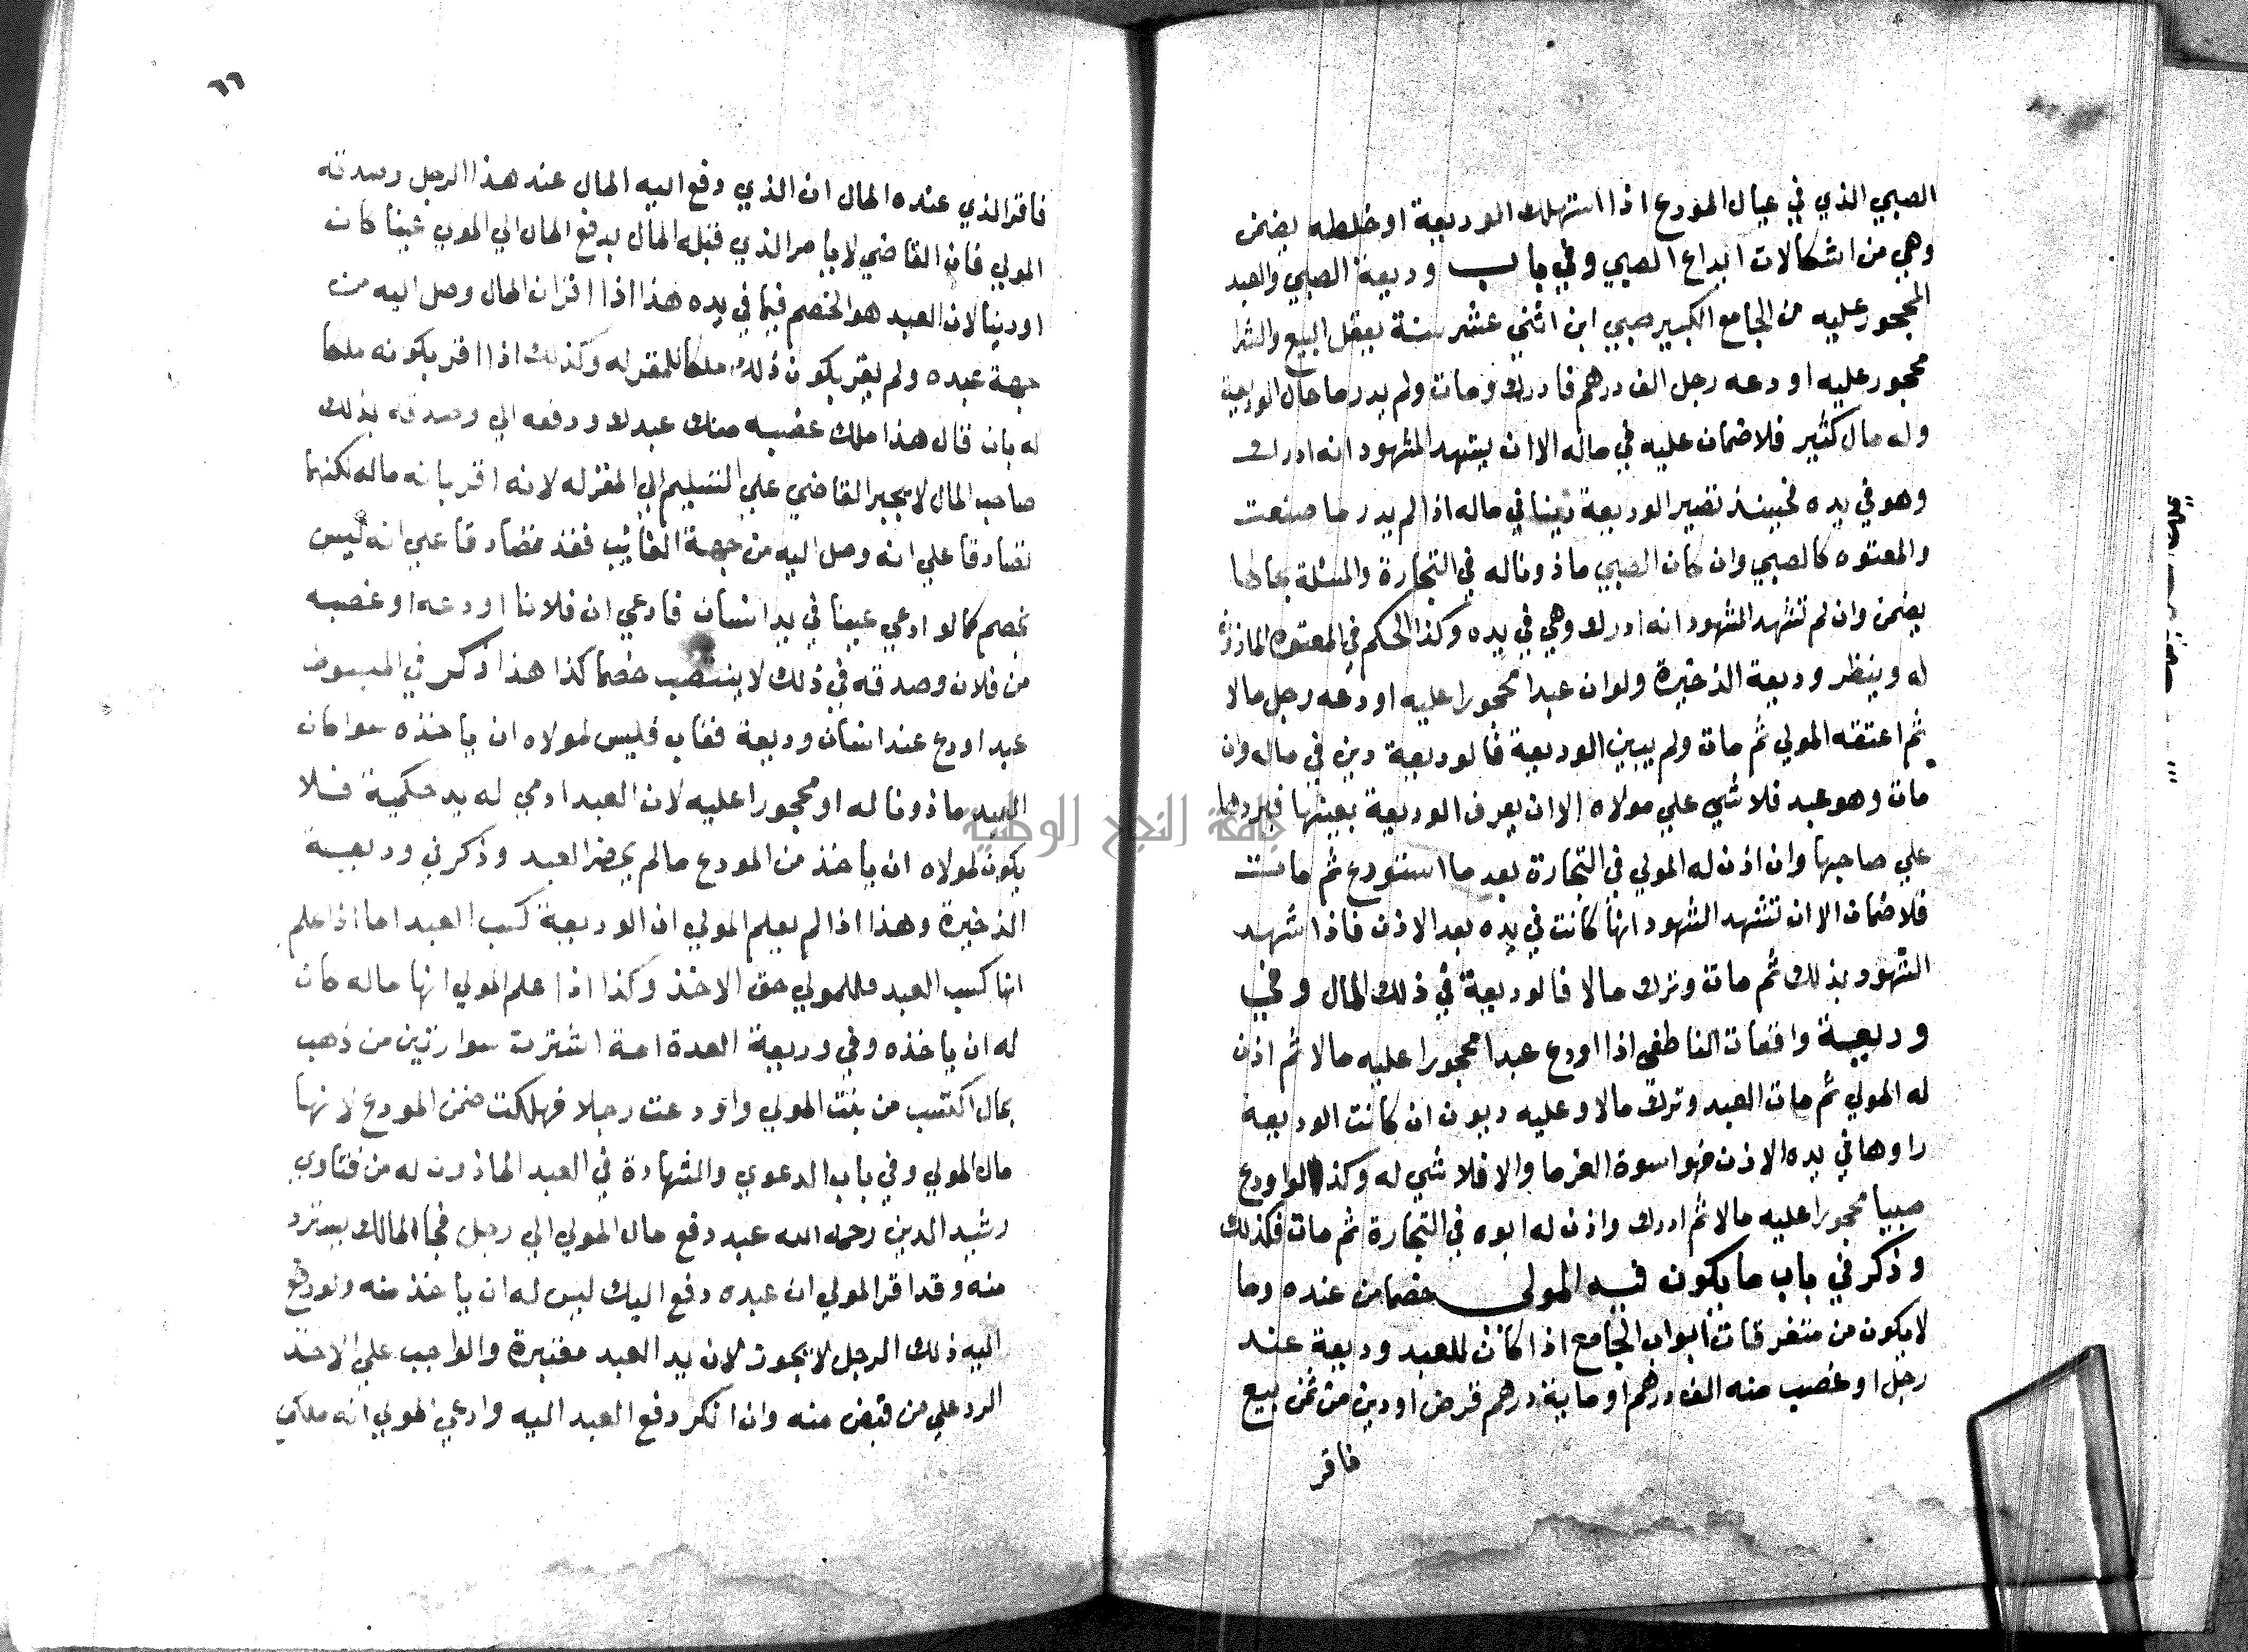 الصبي الذي في عيال المودع اذا استهلك الوديعة او خلطه يضمن
وهي من اشكالات ايداع الصبي وفي باب وديعة الصبي والعبد
المحجور عليه من الجامع الكبير صبي ابن اثني عشر سنة يعقل البيع والشرا
محجور عليه اودعه رجل الف درهم فادرك ومات ولم يدر ما حال الوديعة
وله مال كثير فلا ضمان عليه في ماله الا ان يشهد الشهود انه ادرك
وهو في يده فحينئذ تصير الوديعة دينا في ماله اذا لم يدر ما صنعت
والمعتوه كالصبي وان كان الصبي ماذونا له في التجارة والمسئلة بحالها
يضمن وان لم تشهد الشهود انه ادرك وهي في يده وكذا الحكم في المعتوه الماذون
له وينظر وديعة الذخيرة ولو ان عبدا محجورا عليه اودعه رجل مالا
ثم اعتقه المولي ثم مات ولم يبين الوديعة فالوديعة دين في ماله وان
مات وهو عبد فلا شي علي مولاه الا ان يعرف الوديعة بعينها فيردها
علي صاحبها وان اذن له المولي في التجارة بعد ما استودع ثم مات
فلا ضمان الا ان تشهد الشهود انها كانت في يده بعد الاذن فاذا شهد
الشهود بذلك ثم مات وترك مالا فالوديعة في ذلك المال وفي
وديعة واقعات الناطفي اذا اودع عبدا محجورا عليه مالا ثم اذن
له المولي ثم مات العبد وترك مالا وعليه ديون ان كانت الوديعة
راوها في يده الاذن فهو اسوة الغرما والا فلا شي له وكذا لو اودع
صبيا محجورا عليه مالا ثم ادرك واذن له ابوه في التجارة ثم مات فكذلك
وذكر في باب ما يكون فيه المولى خصما من عنده وما
لا يكون من متفرقات ابواب الجامع اذا كان للعبد وديعة عند
رجل او غصب منه الف درهم او ماية درهم قرض او دين من ثمن بيع
فاقر
٦٦
فاقر الذي عنده المال ان الذي دفع اليه المال عند هذا الرجل وصدقه
المولي فان القاضي لا يامر الذي قبله المال بدفع المال الي المولي عينا كان
او دينا لان العبد هو الخصم فيما في يده هذا اذا اقر ان المال وصل اليه من
جهة عبده ولم يقر بكون ذلك ملكا للمقر له وكذلك اذا اقر بكونه ملكا
له بان قال هذا ملك غصبه منك عبدك ودفعه الي وصدقه بذلك
صاحب المال لا يجبر القاضي علي التسليم الي المقر له لانه اقر بانه ماله لكنهما
تصادقا علي انه وصل اليه من جهة الغائب فقد تصادقا علي انه ليس
بخصم كما لو ادعي عينا في يد انسان فادعي ان فلانا اودعه او غصبه
من فلان وصدقه في ذلك لا ينتصب خصما كذا هذا ذكر في المبسوط
عبد اودع عند انسان وديعة فغاب فليس لمولاه ان ياخذه سوا كان
العبد ماذونا له او محجورا عليه لان العبد ادمي له يد حكمية فلا
يكون لمولاه ان ياخذ من المودع مالم يحضر العبد وذكر في وديعة
الذخيرة وهذا اذا لم يعلم المولي ان الوديعة كسب العبد اما اذا علم
انها كسب العبد فللمولي حق الاخذ وكذا اذا علم المولي انها ماله كان
له ان ياخذه وفي وديعة العدة امة اشترت سوارين من ذهب
بمال اكتسب من بيت المولي واودعت رجلا فهلكت ضمن المودع لانها
مال المولي وفي باب الدعوي والشهادة في العبد الماذون له من فتاوي
رشيد الدين رحمه الله عبد دفع مال المولي الي رجل فجا المالك يسترد
منه وقد اقر المولي ان عبده دفع اليك ليس له ان ياخذ منه ولو دفع
اليه ذلك الرجل لا يجوز لان يد العبد معتبرة والواجب علي الاخذ
الرد علي من قبض منه وان انكر دفع العبد اليه وادعي المولي انه ملكي
جامعة النجاح الوطنية